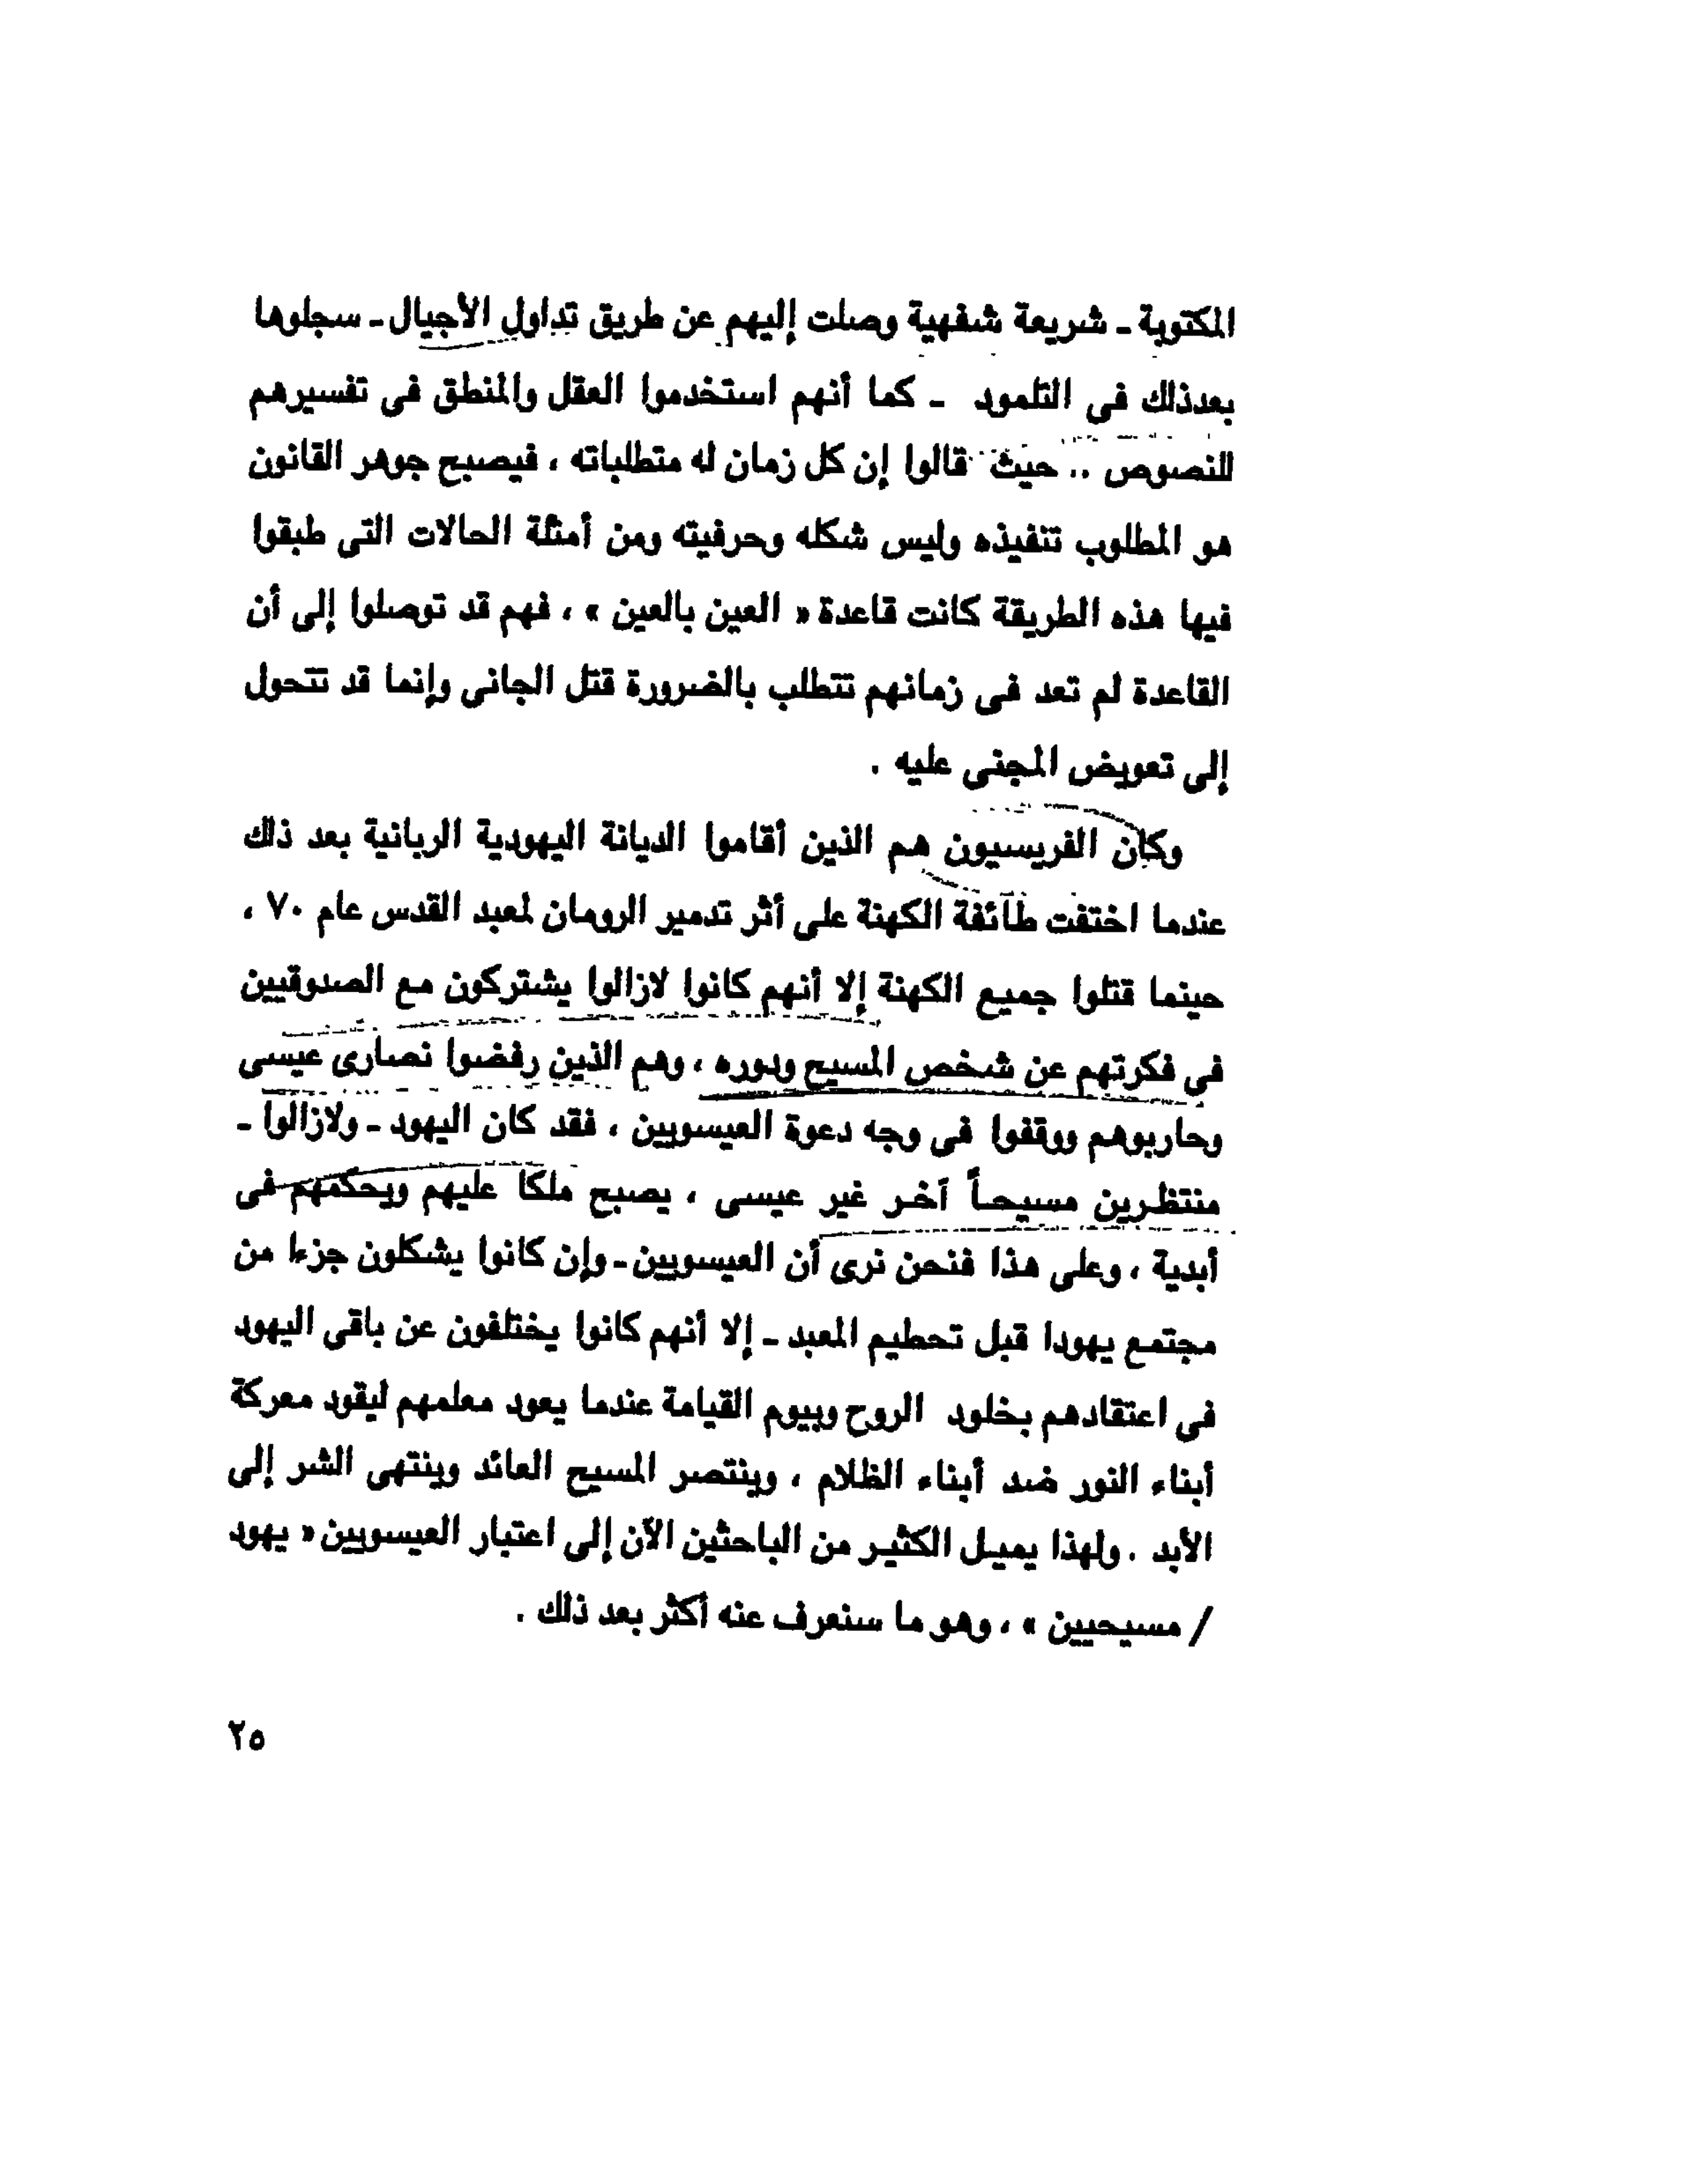 المكتوبة ـ شريعة شفهية وصلت إليهم عن طريق تداول الأجيال ـ سجلوها
بعدذلك فى التلمود ـ كما أنهم استخدموا العقل والمنطق فى تفسيرهم
للنصوص .. حيث قالوا إن كل زمان له متطلباته ، فيصبح جوهر القانون
هو المطلوب تنفيذه وليس شكله وحرفيته ومن أمثلة الحالات التى طبقوا
فيها هذه الطريقة كانت قاعدة « العين بالعين » ، فهم قد توصلوا إلى أن
القاعدة لم تعد فى زمانهم تتطلب بالضرورة قتل الجانى وإنما قد تتحول
إلى تعويض المجنى عليه .
وكان الفريسيون هم الذين أقاموا الديانة اليهودية الربانية بعد ذلك
عندما اختفت طائفة الكهنة على أثر تدمير الرومان لمعبد القدس عام ٧٠ ،
حينما قتلوا جميع الكهنة إلا أنهم كانوا لازالوا يشتركون مع الصدوقيين
فى فكرتهم عن شخص المسيح ودوره ، وهم الذين رفضوا نصارى عيسى
وحاربوهم ووقفوا فى وجه دعوة العيسويين ، فقد كان اليهود ـ ولازالوا ـ
منتظرين مسيحاً آخر غير عيسى ، يصبح ملكا عليهم ويحكمهم فى
أبدية ، وعلى هذا فنحن نرى أن العيسويين ـ وإن كانوا يشكلون جزءا من
مجتمع يهودا قبل تحطيم المعبد ـ إلا أنهم كانوا يختلفون عن باقى اليهود
فى اعتقادهم بخلود الروح وبيوم القيامة عندما يعود معلمهم ليقود معركة
أبناء النور ضد أبناء الظلام ، وينتصر المسيح العائد وينتهى الشر إلى
الأبد . ولهذا يميل الكثير من الباحثين الآن إلى اعتبار العيسويين « يهود
/ مسيحيين » ، وهو ما سنعرف عنه أكثر بعد ذلك .
٢٥